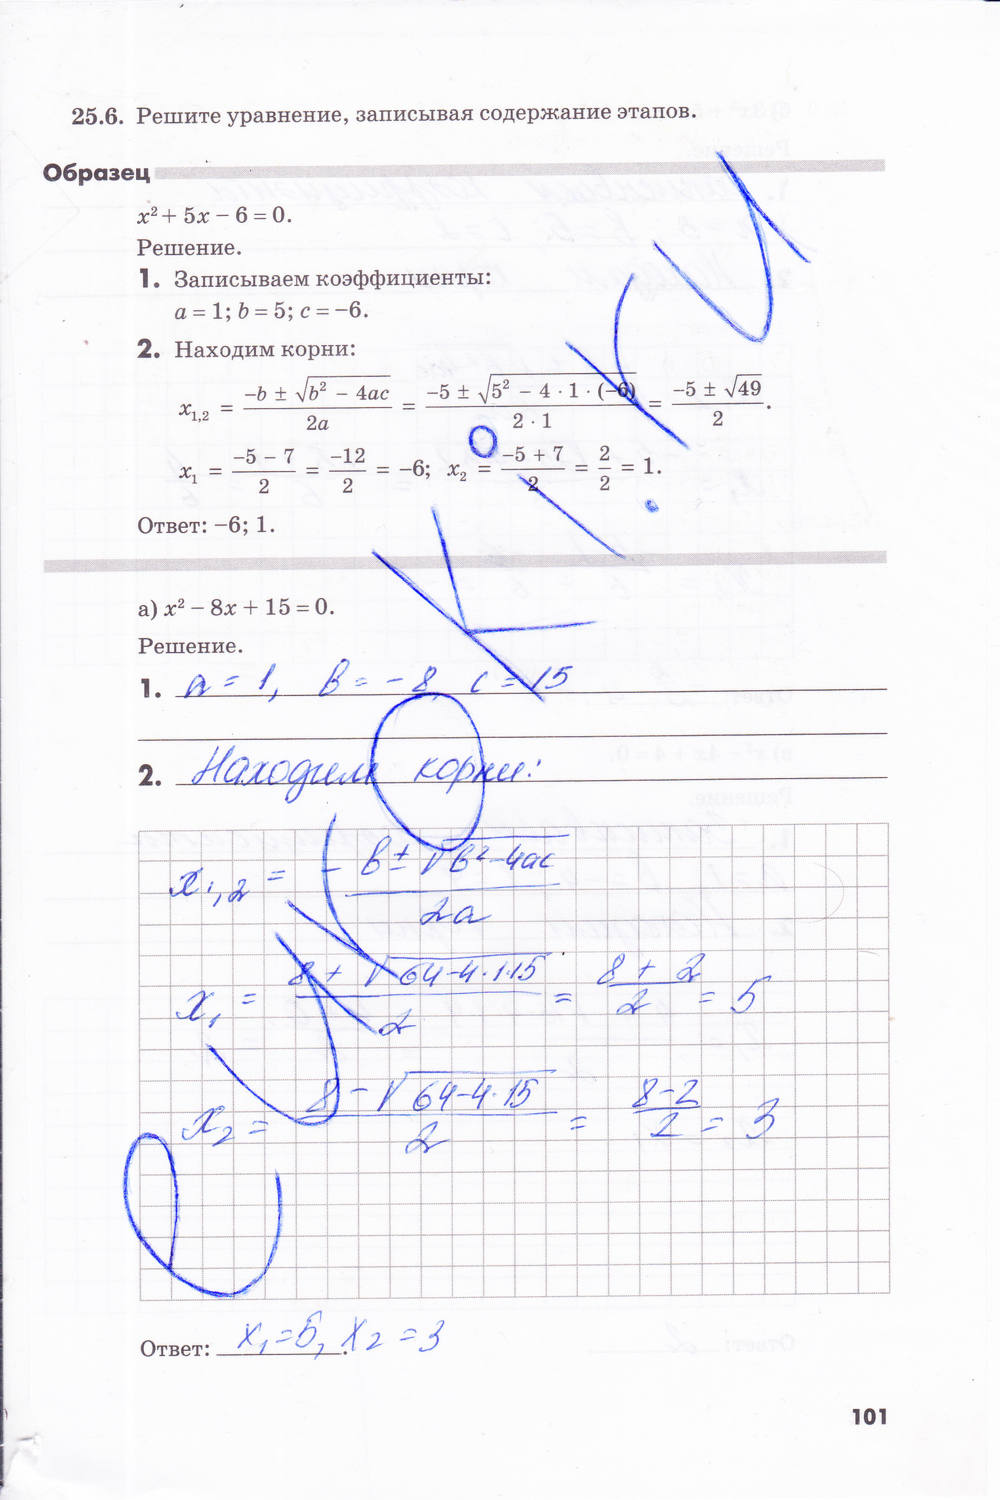 25.6. Решите уравнение, записывая содержание этапов.
Образец
x² + 5x − 6 = 0.
Решение.
1. Записываем коэффициенты:
a = 1; b = 5; c = −6.
2. Находим корни:
x₁,₂ = (−b ± √(b² − 4ac))/(2a) = (−5 ± √(5² − 4 · 1 · (−6)))/(2 · 1) = (−5 ± √49)/2.
x₁ = (−5 − 7)/2 = −12/2 = −6; x₂ = (−5 + 7)/2 = 2/2 = 1.
Ответ: −6; 1.
а) x² − 8x + 15 = 0.
Решение.
1. a = 1, в = −8, c = 15
2. Находим корни:
x₁,₂ = (−в ± √(в² − 4ac))/(2a)
x₁ = (8 + √(64 − 4 · 1 · 15))/2 = (8 + 2)/2 = 5
x₂ = (8 − √(64 − 4 · 15))/2 = (8 − 2)/2 = 3
Ответ: x₁ = 5, x₂ = 3.
101